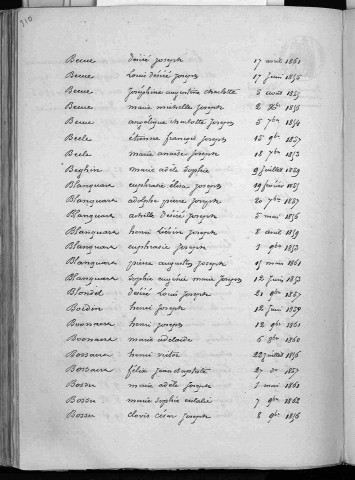 310
Becue désiré joseph 17 août 1861
Becue Louis désiré joseph 17 juin 1855
Becue joséphine augustine charlotte 5 août 1857
Becue marie mathilde joseph 2 Xbre 1856
Becue angélique charlotte joseph 5 7bre 1854
Beele étienne françois joseph 15 9bre 1857
Beele marie anaïse joseph 18 7bre 1853
Beghin marie adèle sophie 9 juillet 1859
Blanquart euphrasie élisa joseph 19 février 1857
Blanquart adolphe pierre joseph 20 7bre 1857
Blanquart achille désiré joseph 5 mai 1856
Blanquart henri liévin joseph 8 avril 1859
Blanquart euphrasie joseph 1 9bre 1852
Blanquart pierre augustin joseph 15 mars 1861
Blanquart sophie eugénie marie joseph 12 juin 1853
Blondel désiré Louis joseph 21 9bre 1857
Boidin henri joseph 12 juin 1859
Bonnaire henri joseph 12 9bre 1861
Bonnaire marie adelaïde 6 8bre 1860
Bossaert henri victor 22 juillet 1856
Bossaert félix jean baptiste 27 1857
Bossu marie adèle joseph 1 mai 1861
Bossu marie sophie eulalie 7 9bre 1862
Bossu clovis césar joseph 8 9bre 1856